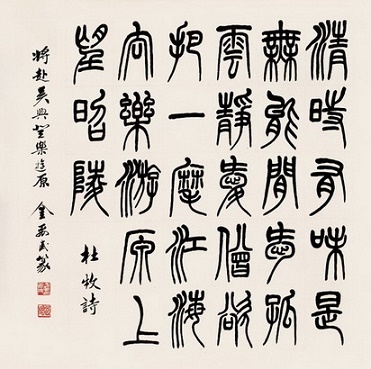 清時有味是
無能閒愛孤
雲靜愛僧欲
把一麾江海
去樂游原上
望昭陵
杜牧詩
將赴吳興登樂遊原 金禹民篆